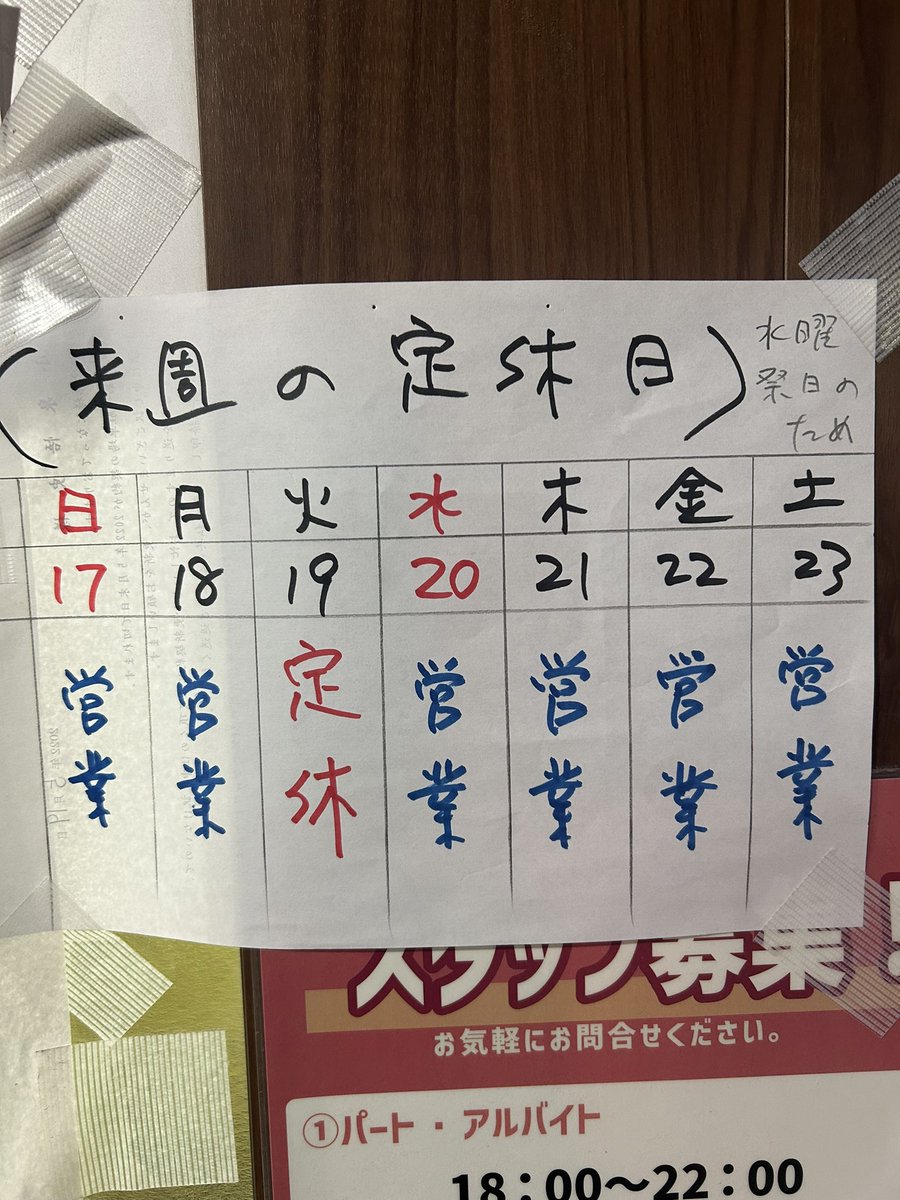 (来週の定休日)
水曜
祭日の
ため
日 月 火 水 木 金 土
17 18 19 20 21 22 23
営業 営業 定休 営業 営業 営業 営業
スタッフ募集!
お気軽にお問合せください。
①パート・アルバイト
18:00〜22:00